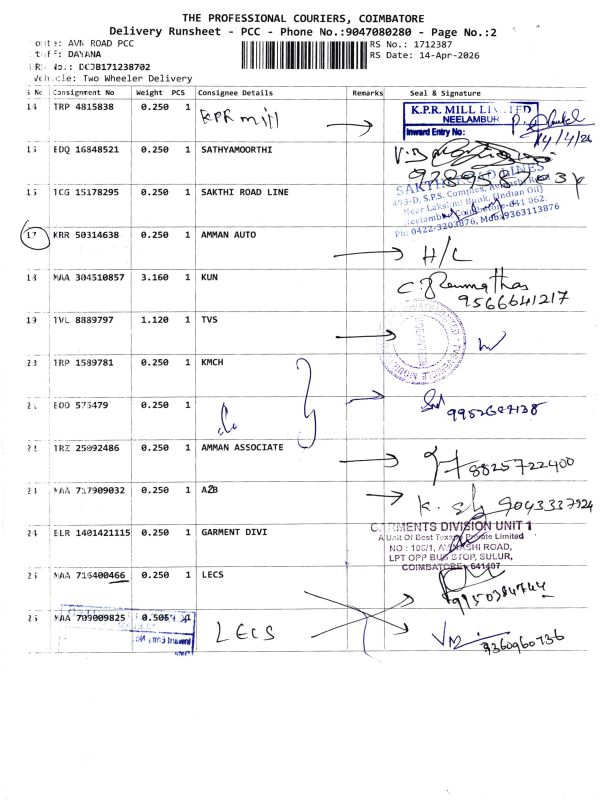 THE PROFESSIONAL COURIERS, COIMBATORE
Delivery Runsheet - PCC - Phone No.:9047080280 - Page No.:2
AVN ROAD PCC
RS No.: 1712387
DAYANA
RS Date: 14-Apr-2026
No.: DCJB171238702
Vehicle: Two Wheeler Delivery
S No Consignment No Weight PCS Consignee Details Remarks Seal & Signature
14 TRP 4815838 0.250 1 KPR mill
K.P.R. MILL LIMITED
NEELAMBUR
Inward Entry No:
14/4/26
15 EDQ 16848521 0.250 1 SATHYAMOORTHI
16 TCG 15178295 0.250 1 SAKTHI ROAD LINE
SAKTHI ROAD LINES
493-D, S.P.S. Complex, Avinashi Road
Near Lakshmi Bunk, (Indian Oil)
Neelambur, Coimbatore-641 062.
Ph: 0422-3203876, Mob:9363113876
17 KRR 50314638 0.250 1 AMMAN AUTO
H/C
18 MAA 304510857 3.160 1 KUN
9566641217
19 TVL 8889797 1.120 1 TVS
20 TRP 1589781 0.250 1 KMCH
21 EOD 575479 0.250 1
22 TRZ 25092486 0.250 1 AMMAN ASSOCIATE
8825722400
23 MAA 717909032 0.250 1 A2B
9043337924
24 ELR 1401421115 0.250 1 GARMENT DIVI
GARMENTS DIVISION UNIT 1
A Unit Of Best Texas Private Limited
NO : 105/1, AVINASHI ROAD,
LPT OPP BUS STOP, SULUR,
COIMBATORE 641407
25 MAA 716400466 0.250 1 LECS
26 MAA 709009825 0.505 1 LECS
9360960736